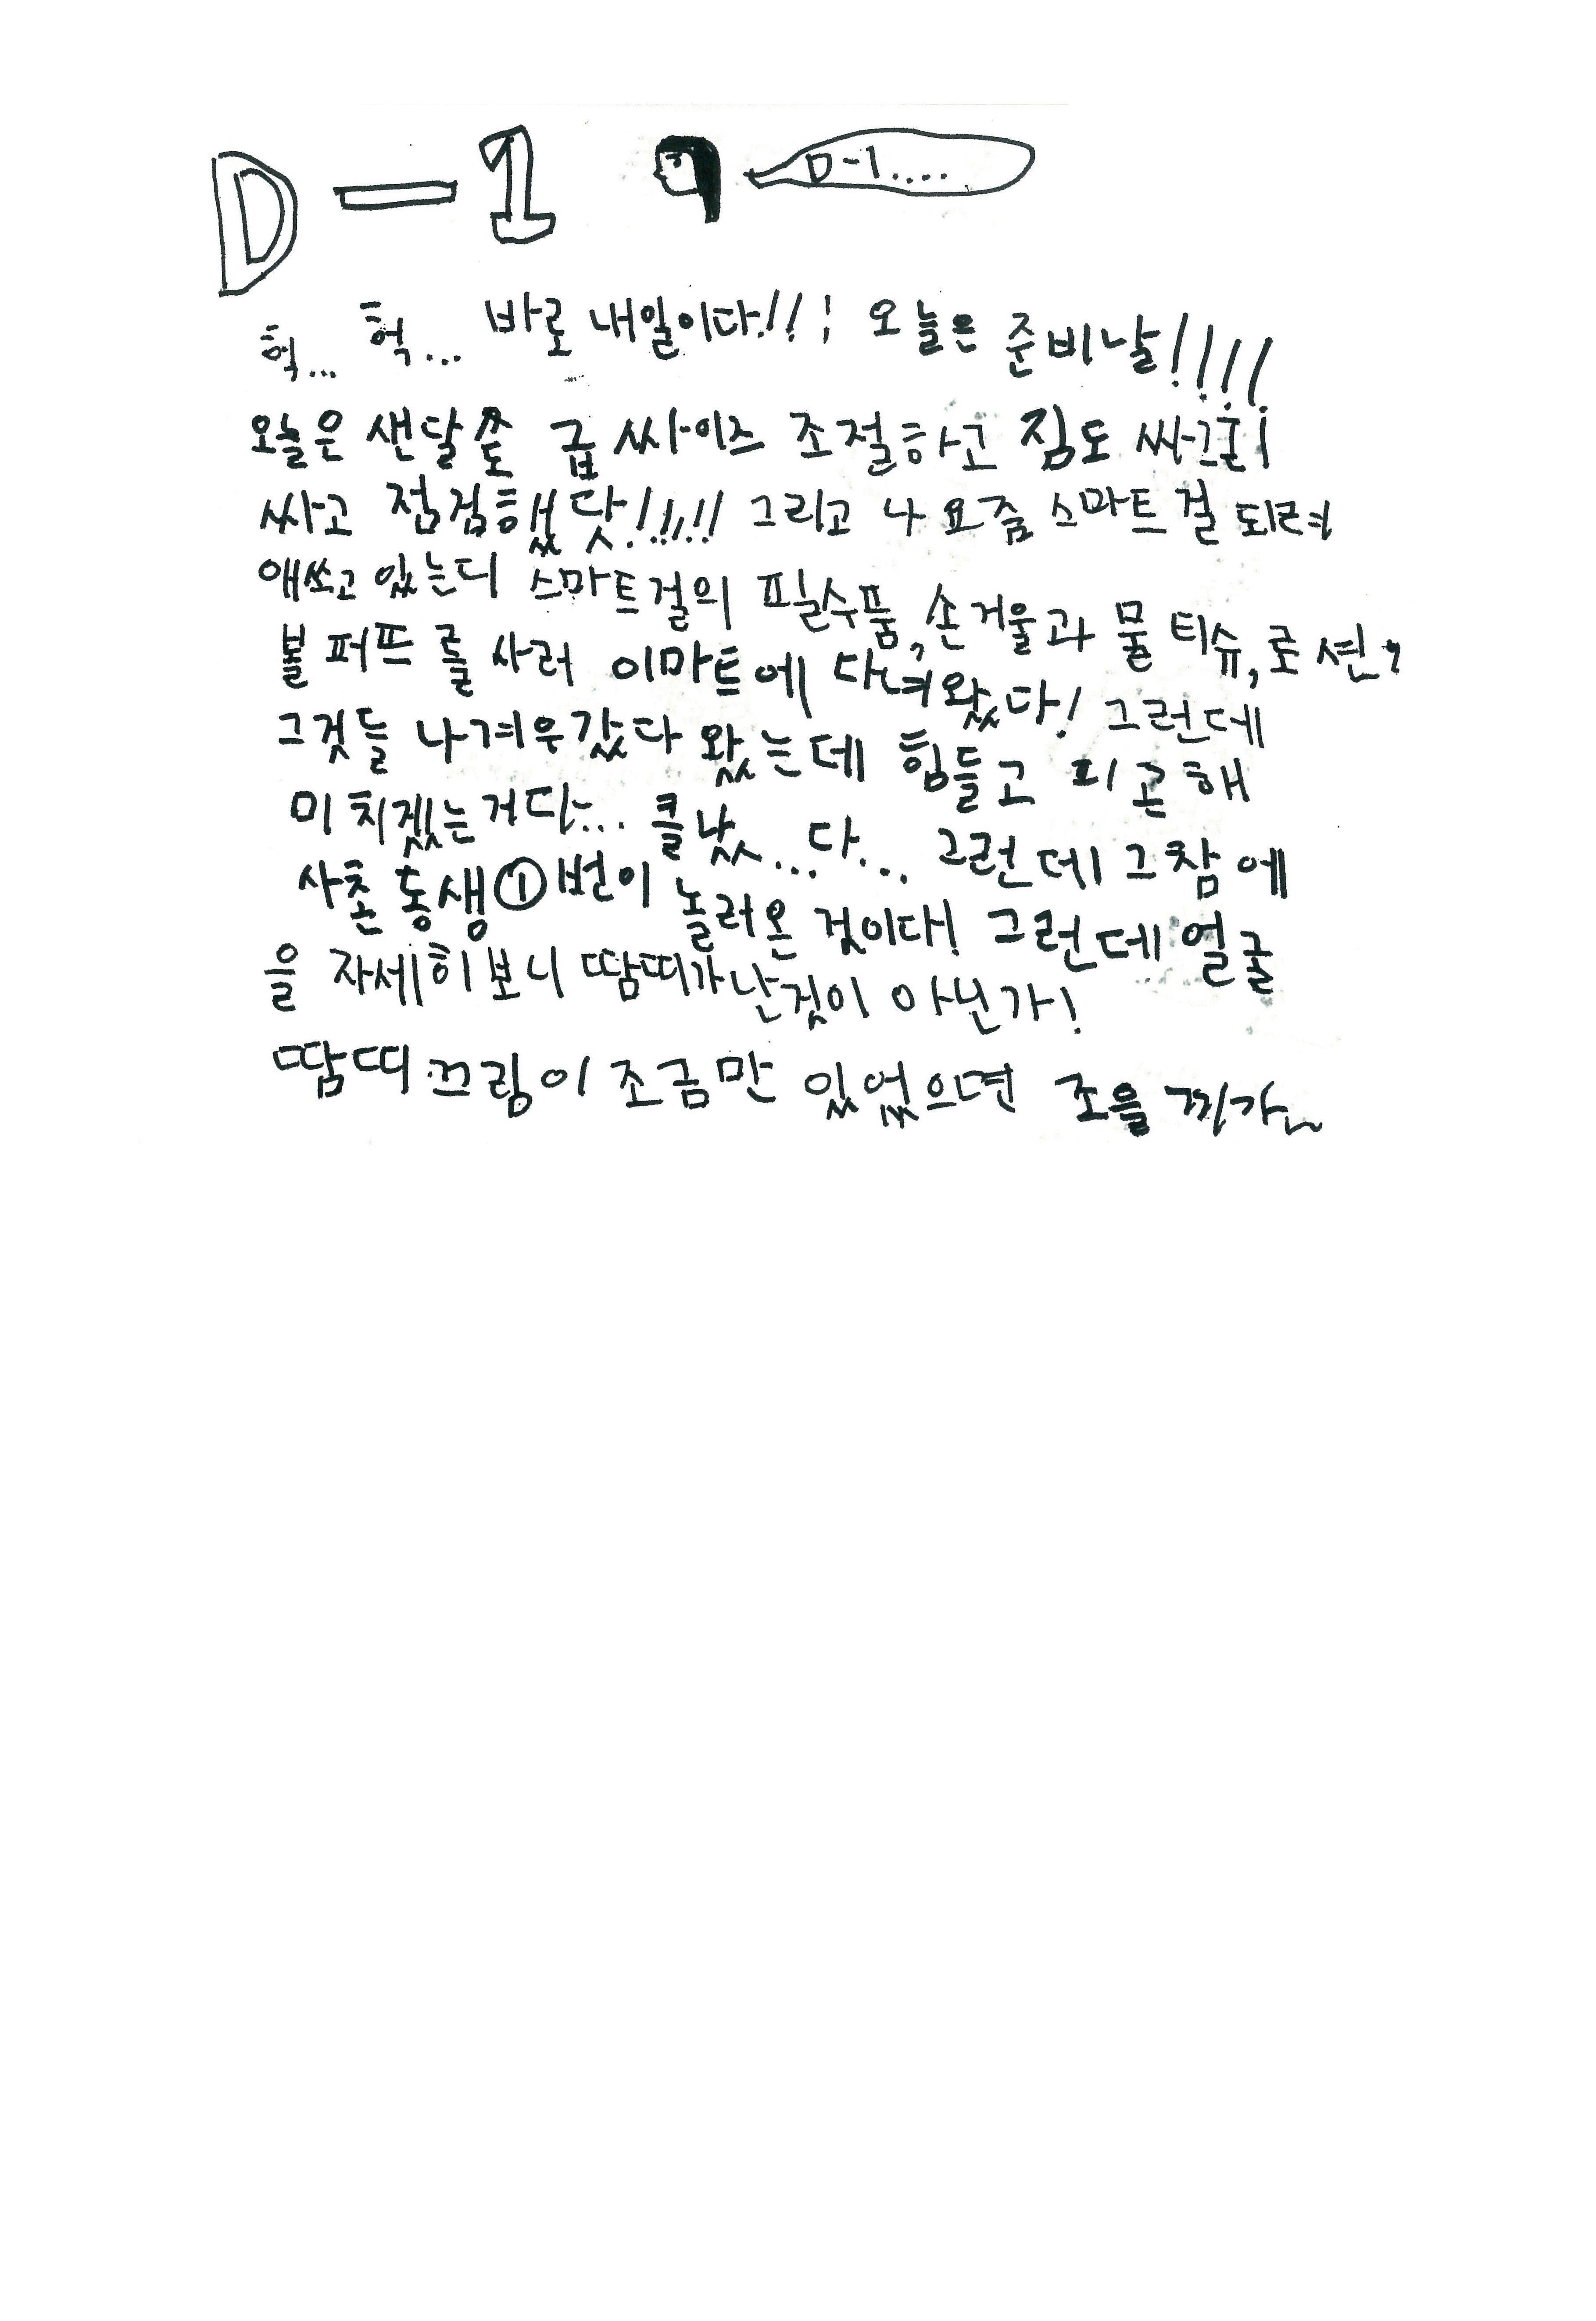 D-1 D-1....
헉... 헉... 바로 내일이다!!! 오늘은 준비날!!!!
오늘은 샌달쫌 굽 싸이즈 조절하고 짐도 싸그리
싸고 점검했닷!!!!! 그리고 나 요즘 스마트 걸 되려
애쓰고 있는디 스마트걸의 필수품, 손거울과 물 티슈, 로션,
볼 퍼프 를 사러 이마트에 다녀왔다! 그런데
그것들 나겨우갔다 왔는데 힘들고 피곤해
미치겠는거다... 클났...다... 그런데 그참에
사촌동생①번이 놀러온 것이다! 그런데 얼굴
을 자세히보니 땀띠가난것이 아닌가!
땀띠끄림이 조금만 있었으면 조을낀가~